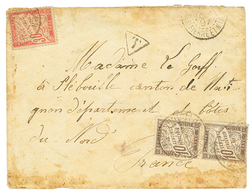 T
Madame Le Goff
à Pléboulle canton de Mati-
gnon département des Côtes
du Nord
France
10
10
10